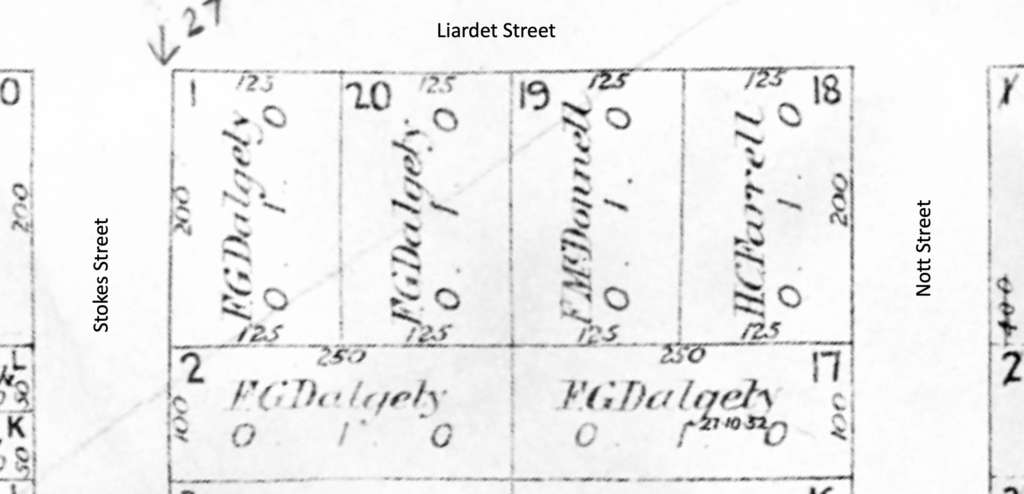 27
Liardet Street
0
200
Stokes Street
1
125
F G Dalgety
0 . 1 . 0
200
125
20
125
F G Dalgety
0 . 1 . 0
125
19
125
F McDonnell
0 . 1 . 0
125
18
125
H C Farrell
0 . 1 . 0
200
125
Nott Street
400
2
250
F G Dalgety
0 1 0
100
17
250
F G Dalgety
0 1 0
27·10·52
100
2
L
50
K
50